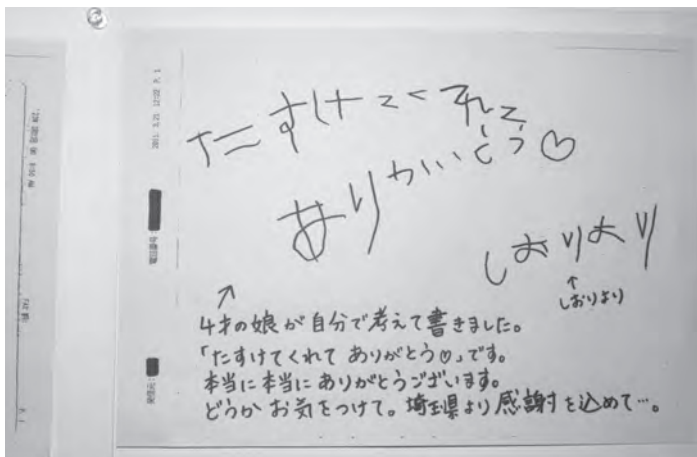 2011. 3.21 12:02 P. 1
たすけてくれて
ありがとう♡
しおりより
↑
しおりより
↗
4才の娘が自分で考えて書きました。
「たすけてくれて ありがとう♡」です。
本当に本当にありがとうございます。
どうか お気をつけて。埼玉県より感謝を込めて…。
電話番号:
発信元:
P. 1